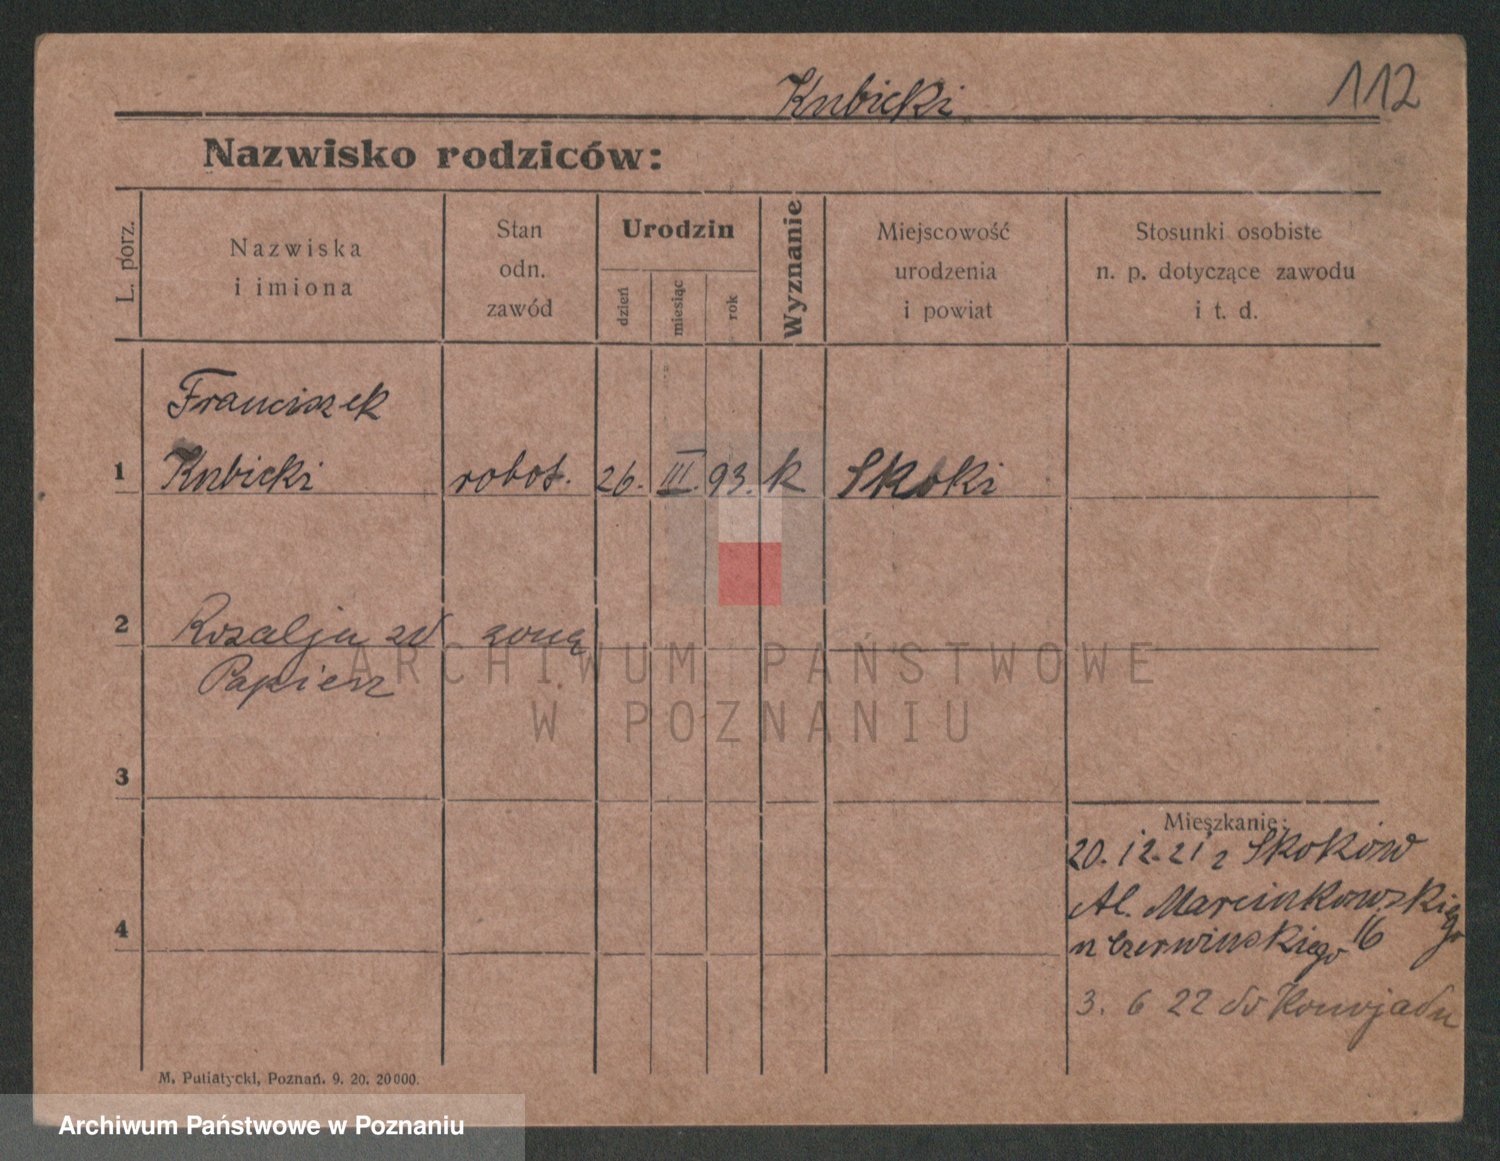 Kubicki
112
Nazwisko rodziców:
L. porz.
Nazwiska
i imiona
Stan
odn.
zawód
Urodzin
dzień
miesiąc
rok
Wyznanie
Miejscowość
urodzenia
i powiat
Stosunki osobiste
n. p. dotyczące zawodu
i t. d.
Franciszek
1 Kubicki robot. 26. III. 93. k Skoki
2 Rozalja zd żoną
Papierz
ARCHIWUM PAŃSTWOWE
W POZNANIU
3
Mieszkanie:
20. 12. 21 z Skoków
Al. Marcinkowskiego
4
u Czerwińskiego 16
3. 6 22 do
M. Putiatycki, Poznań. 9. 20. 20000.
Archiwum Państwowe w Poznaniu